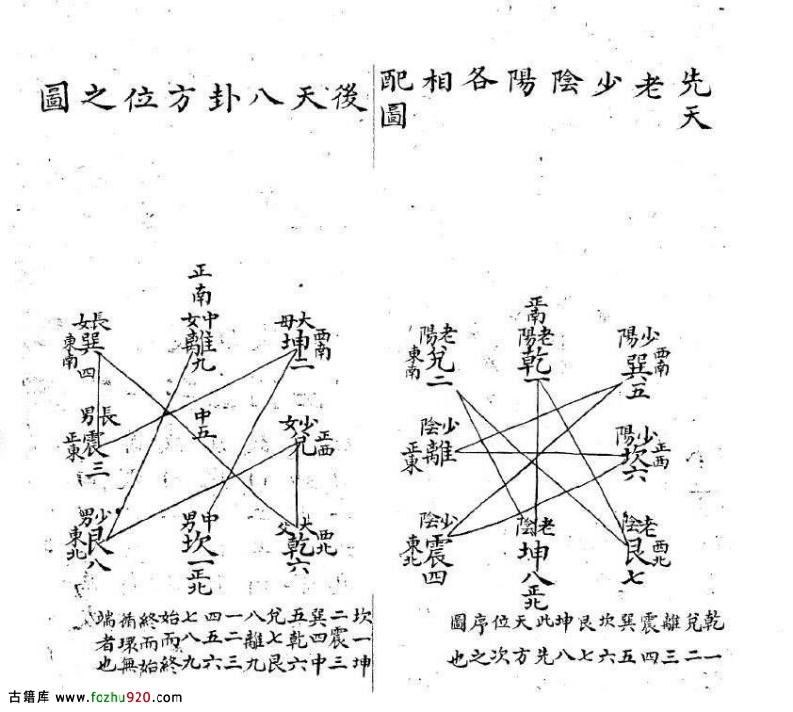 先天老少陰陽各相配圖
少陽巽五西南
正南老陽乾一
老陽兌二東南
少陽坎六正西
少陰離正東
老陰艮七西北
老陰坤八正北
少陰震四東北
乾一兌二離三震四巽五坎六艮七坤八此先天方位次序之圖也
後天八卦方位之圖
大母坤二西南
正南中女離九
長女巽四東南
少女兌正西
中五
長男震三正東
大父乾六西北
中男坎一正北
少男艮八東北
坎一坤二震三巽四中五乾六兌七艮八離九一二三四五六七八九始而終終而始循環無端者也
古籍库 www.fozhu920.com